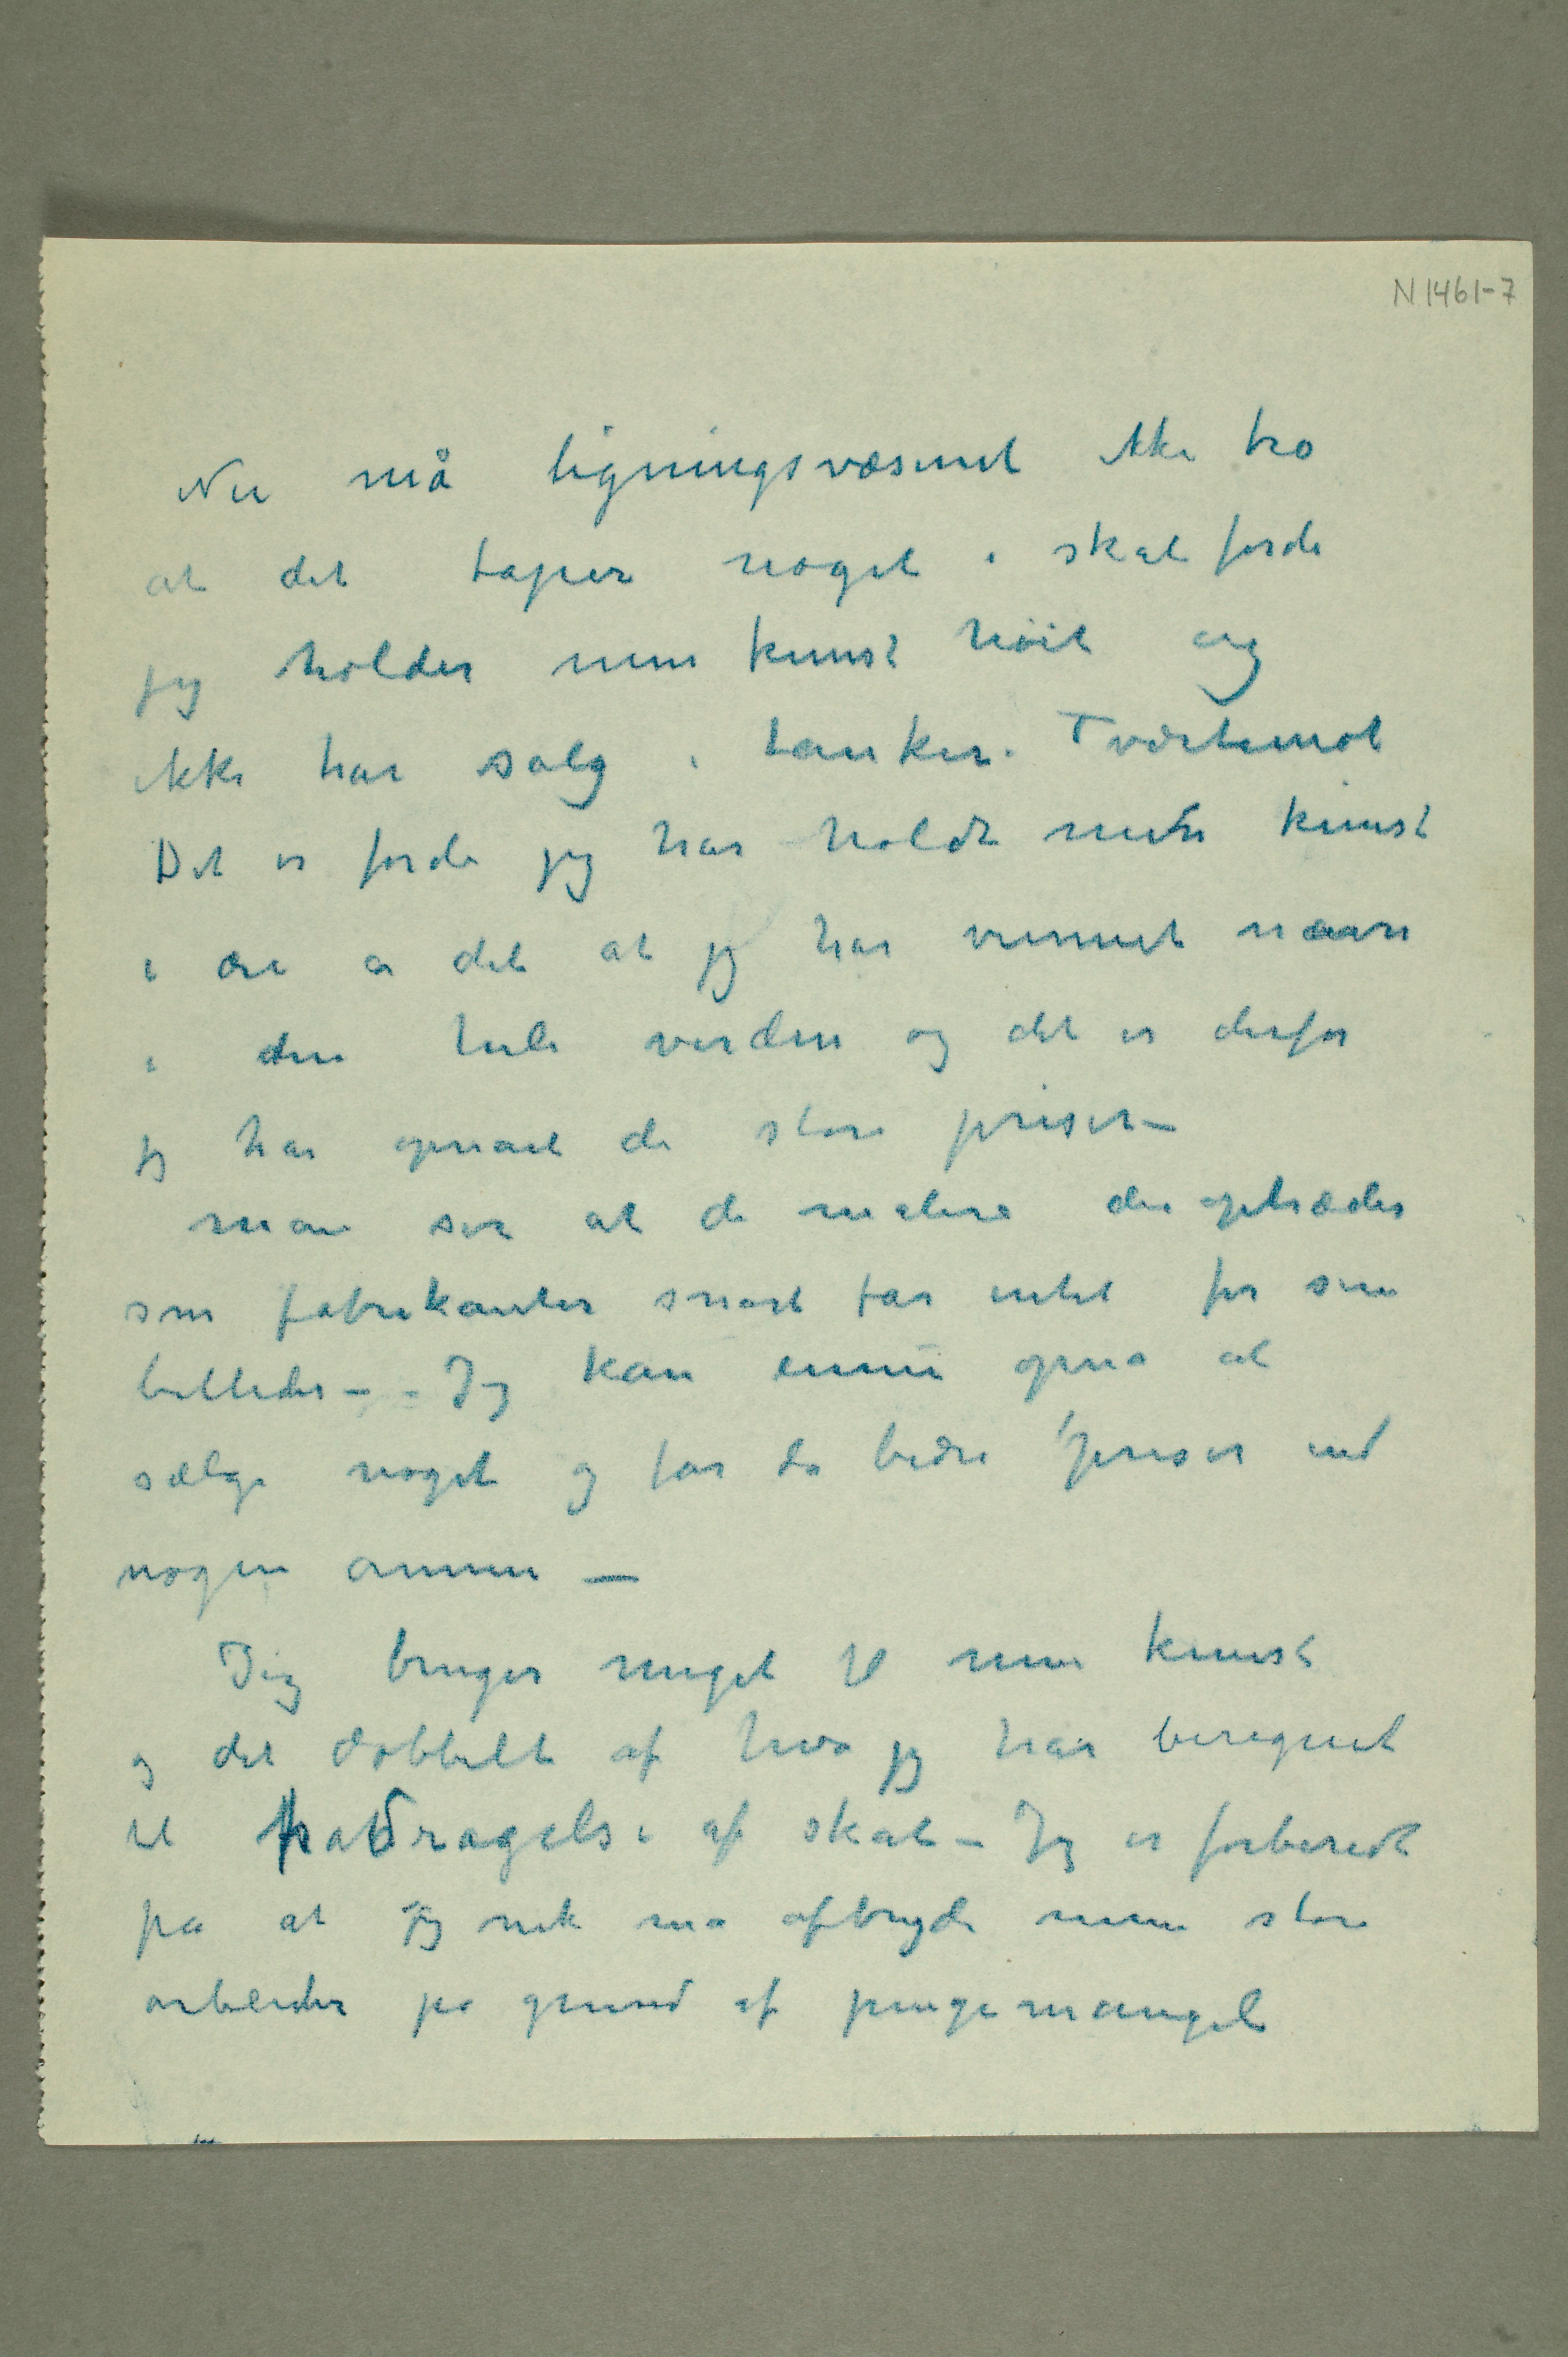 N 1461-7
Nu må ligningsvæsenet ikke tro
at det taper noget i skat fordi
jeg holder min kunst høit og
ikke har salg i tanker. Tvertemot
Det er fordi jeg har holdt min kunst
i ære er det at jeg har vunnet navn
i den hele verden og det er derfor
jeg har opnaaet de store priser –
man ser at de malere der optræder
som fabrikanter snart får intet for sine
billeder – – Jeg kan ennu opnå at
sælge noget og får da bedre priser end
nogen annen –
Jeg bruger meget til min kunst
og det dobbelte af hva jeg har beregnet
til fradragelse af skat – Jeg er forberedt
på at jeg nok må afbryde mine store
arbeider på grund af pengemangel